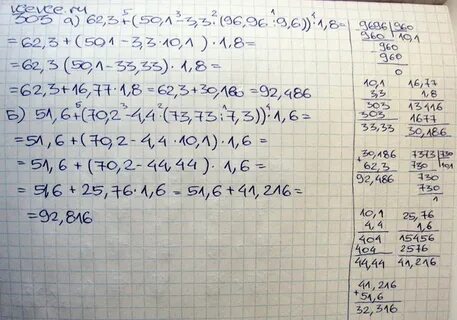 vcevce.ru
303 а) 62,3+(50,1-3,3·(96,96:9,6))·1,8=
=62,3+(50,1-3,3·10,1)·1,8=
=62,3(50,1-33,33)·1,8=
=62,3+16,77·1,8=62,3+30,180=92,486
Б) 51,6+(70,2-4,4·(73,73:7,3))·1,6=
=51,6+(70,2-4,4·10,1)·1,6=
=51,6+(70,2-44,44)·1,6=
=51,6+25,76·1,6=51,6+41,216=
=92,816
9696 960
960 10,1
960
960
0
10,1 16,77
3,3 1,8
303 13416
303 1677
33,33 30,186
+30,186 7373 730
62,3 730 101
92,486 730
730
1
10,1 25,76
4,4 1,6
404 15456
404 2576
44,44 41,216
41,216
+51,6
32,316